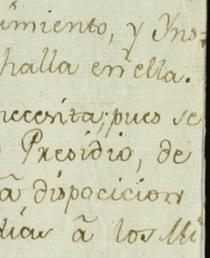 imiento, y Yno-
halla en ella.
necesita; pues se
Presidio, de
â disposicion
dias â los Mi